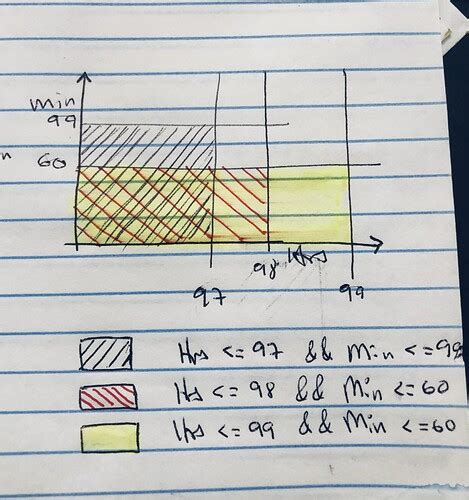 min
99
60
98 Hrs
97
99
Hrs <= 97 && Min <= 99
Hrs <= 98 && Min <= 60
Hrs <= 99 && Min <= 60